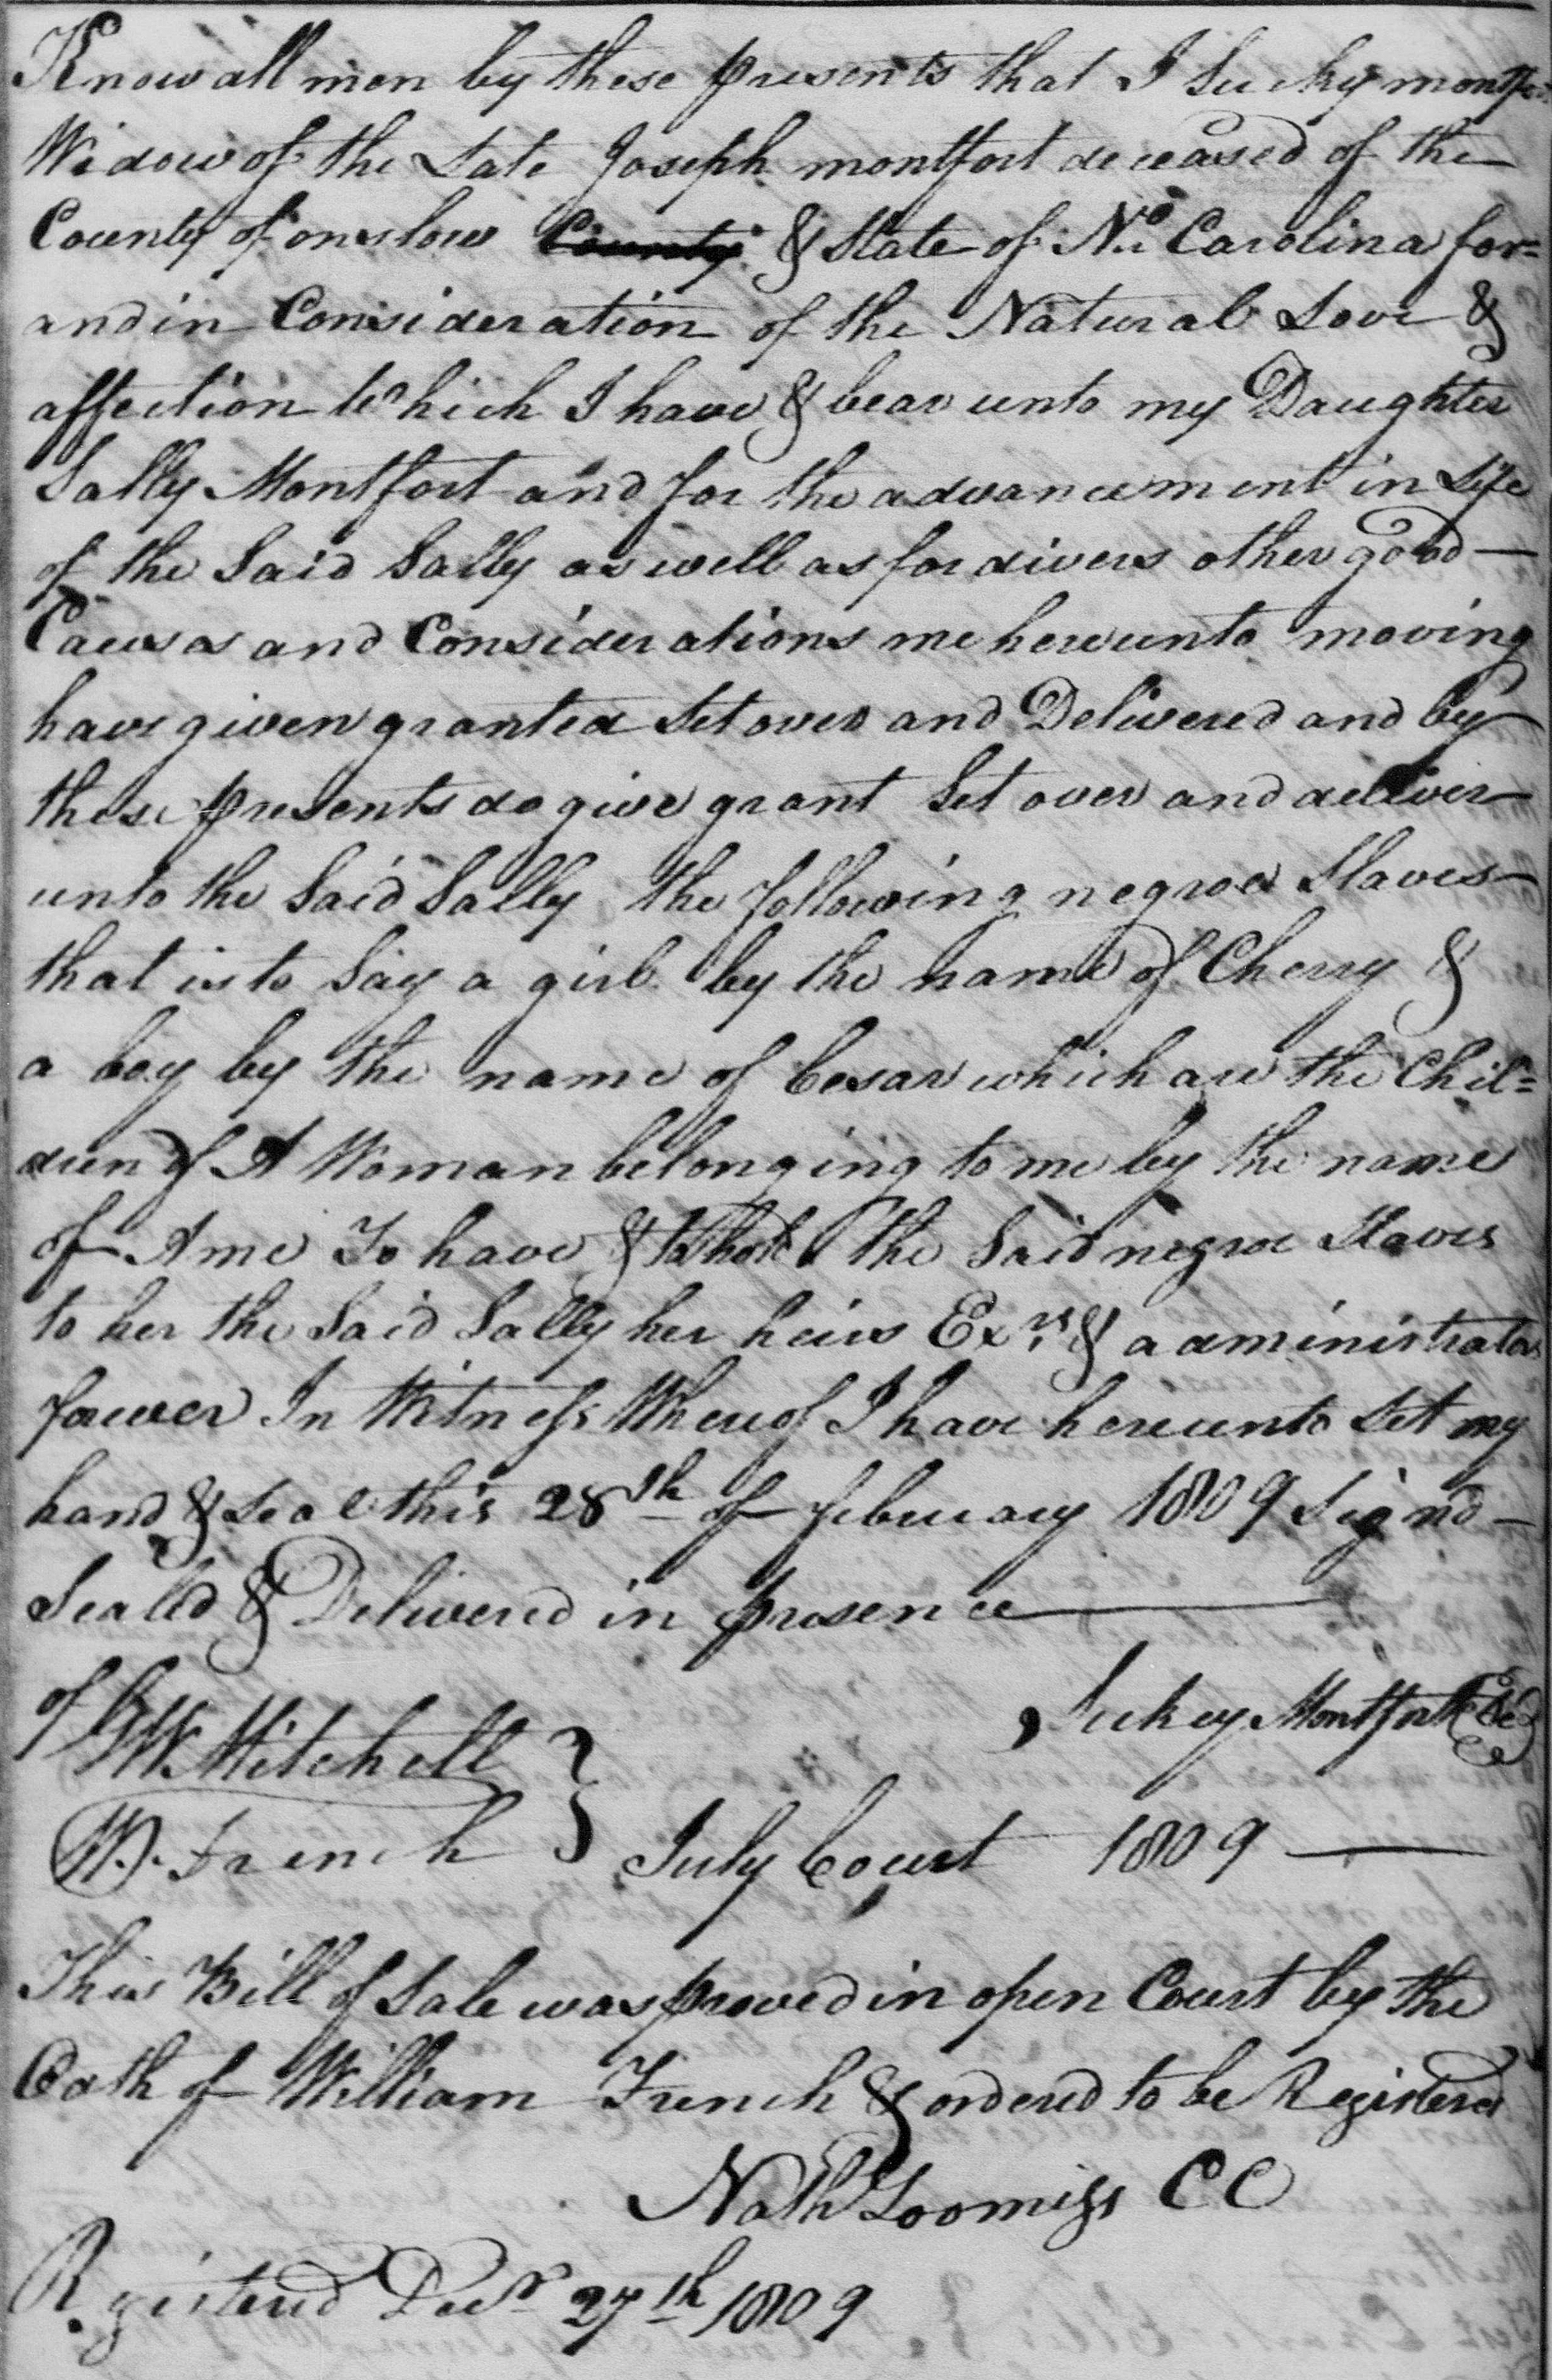 Know all men by these presents that I Sucky montfort
Widow of the Late Joseph montfort deceased of the
County of onslow County & State of No. Carolina for=
and in Consideration of the Natural Love &
affection Which I have & bear unto my Daughter
Sally Montfort and for the advancement in Life
of the Said Sally as well as for divers other good —
Causes and Considerations me hereunto moving
have given granted Set over and Delivered and by
these presents do give grant Set over and deliver
unto the Said Sally the following negroes Slaves
that is to Say a girl by the name of Cherry &
a boy by the name of Cesar which are the Chil=
dren of A Woman belonging to me by the name
of Ame To have & to hold the Said negroe Slaves
to her the Said Sally her heirs Exrs. & administrators
forever In Witness Whereof I have hereunto Set my
hand & Seal this 28th of february 1809 Signd —
Seal'd & Delivered in presence —
of GW Mitchell } Suckey Montfort
W. French } July Court 1809 —
This Bill of Sale was proved in open Court by the
Oath of William French & ordered to be Registered
Nath Loomiss CC
Registered Decr 27th 1809